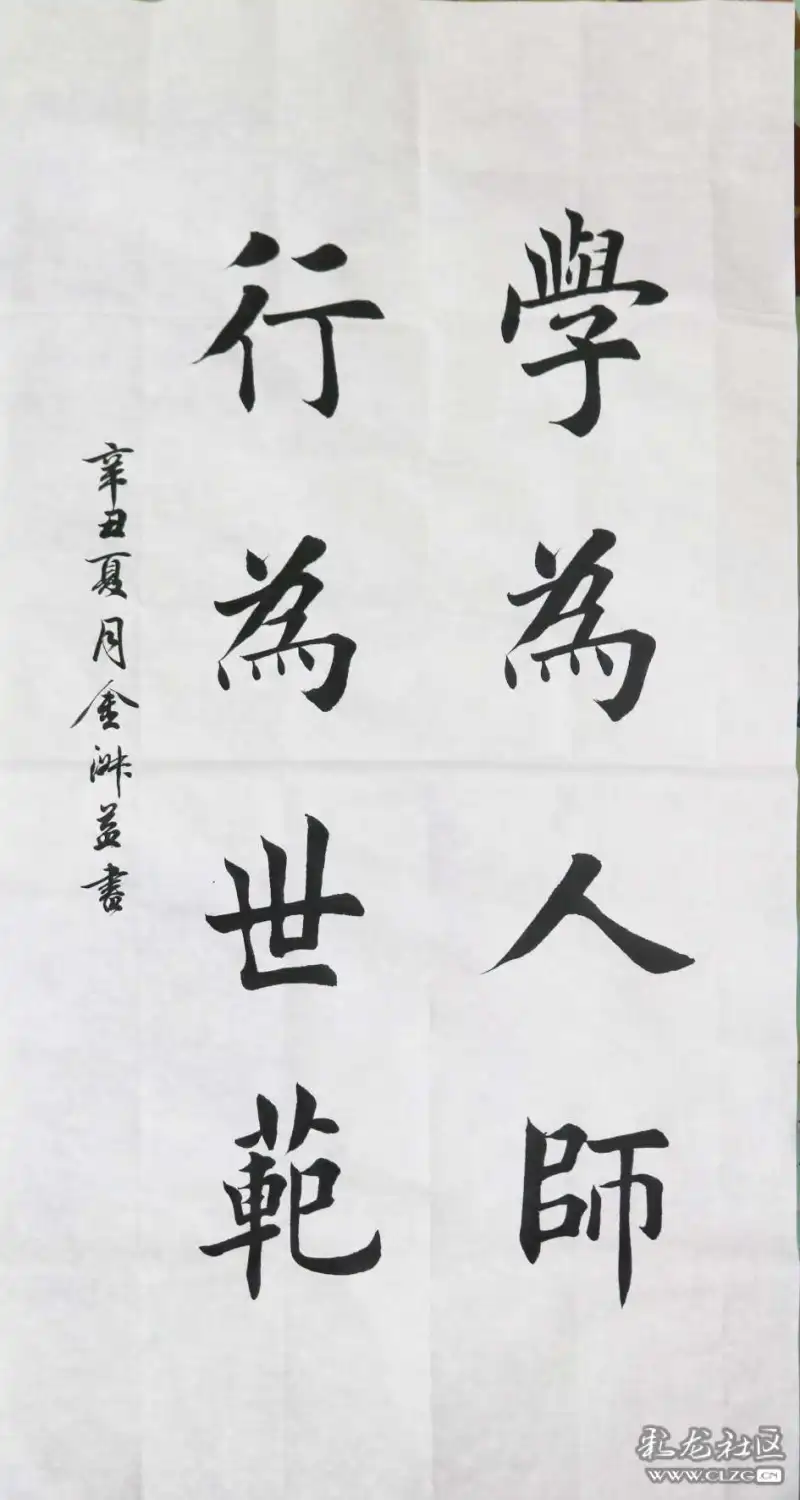 學為人師
行為世範
辛丑夏月金淋益書
彩龙社区
WWW.CLZG.CN